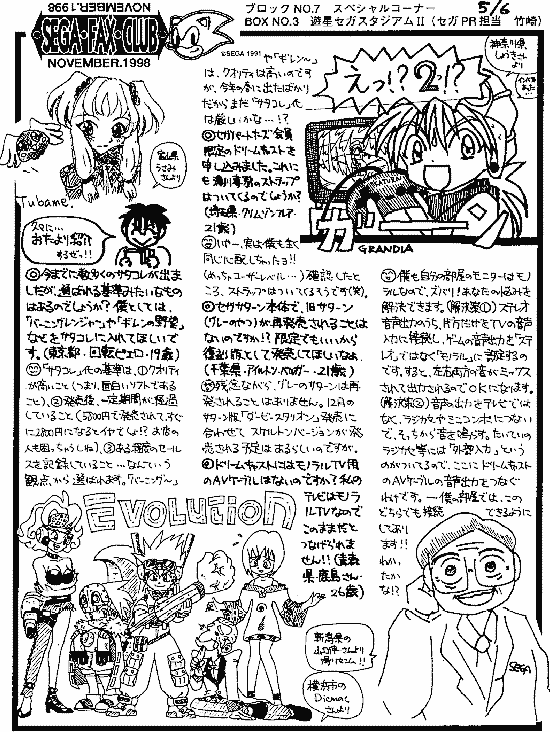 NOVEMBER.1998
SEGA·FAX·CLUB
NOVEMBER.1998
ブロックNO.7 スペシャルコーナー 5/6
BOX NO.3 遊星セガスタジアムⅡ(セガPR担当 竹崎)
©SEGA 1991
神奈川県
えっ!?2!?
GRANDIA
富山県
うさみ
さんより
Tubame.
久々に…
おたより紹介
するぜっ!!
◎今までに数多くのサタコレが出ま
したが、選ばれる基準みたいなもの
はあるのでしょうか?僕としては、
「バーニングレンジャー」や「ギレンの野望」
などをサタコレに入れてほしいで
す。(東京都・回転ピエロ・19歳)
「サタコレ」化の基準は、①クオリティ
が高いこと(つまり、面白いソフトである
こと)、②発売後、一定期間が経過
していること(5800円で発売されて、すぐ
に2800円になるとイヤでしょ!?お店の
人も困っちゃうしね)③ある程度のセール
スを記録していること…なんていう
観点から選ばれます。「バーニング〜」
や「ギレン〜」
は、クオリティは高いのです
が、今年の春に出たばかり
だからまだ「サタコレ」化
は厳しいかな…!?
◎セガパートナーズ会員
限定のドリームキャストを
申し込みました。これに
も湯川専務のストラップ
はついてくるのでしょうか?
(埼玉県・クリムゾンフレア・
21歳)
いやー、実は僕も全く
同じに配しちゃったョ!!
(めっちゃユーザーレベル…)確認したと
ころ、ストラップはついてくるそうです(笑)。
◎セガサターン本体で、旧サターン
(グレーのやつ)が再発売されることは
ないのですか!!限定でもいいから
復刻版として発売してほしいなぁ。
(千葉県・アイルトン・ベガー・21歳)
残念ながら、グレーのサターンは再
発されることはありません。12月の
サターン版「ダービースタリオン」発売に
合わせてスケルトンバージョンが発
売される予定はあるらしいのですが。
◎ドリームキャストにはモノラルTV用
のAVケーブルはないのですか?私の
テレビはモノ
ラルTVなので
このままだと
つなげられま
せん!!(青森
県・鹿島さん・
26歳)
僕も自分の部屋のモニターはモノ
ラルなので、ズバリ!あなたの悩みを
解決できます。(解決策①)ステレオ
音声出力のうち、片方だけをTVの音声
入力に接続し、ゲームの音声出力を「ステ
レオ」ではなく「モノラル」に設定するの
です。すると、左右両方の音がミックス
されて出力されるのでOKになります。
(解決策②)音の出力をテレビでは
なく、ラジカセやミニコンポにつない
で、そっちから音を鳴らす。たいていの
ラジカセ等には「外部入力」という
のがついてるので、ここにドリームキャスト
のAVケーブルの音声出力をつなぐ
わけです。一僕の部屋では、この
どちらでも接続できるように
しており
ます!!
わか
たか
な!?
EVOLUTION
新潟県の
山口伸さんより
横浜市の
さんより
SEGA